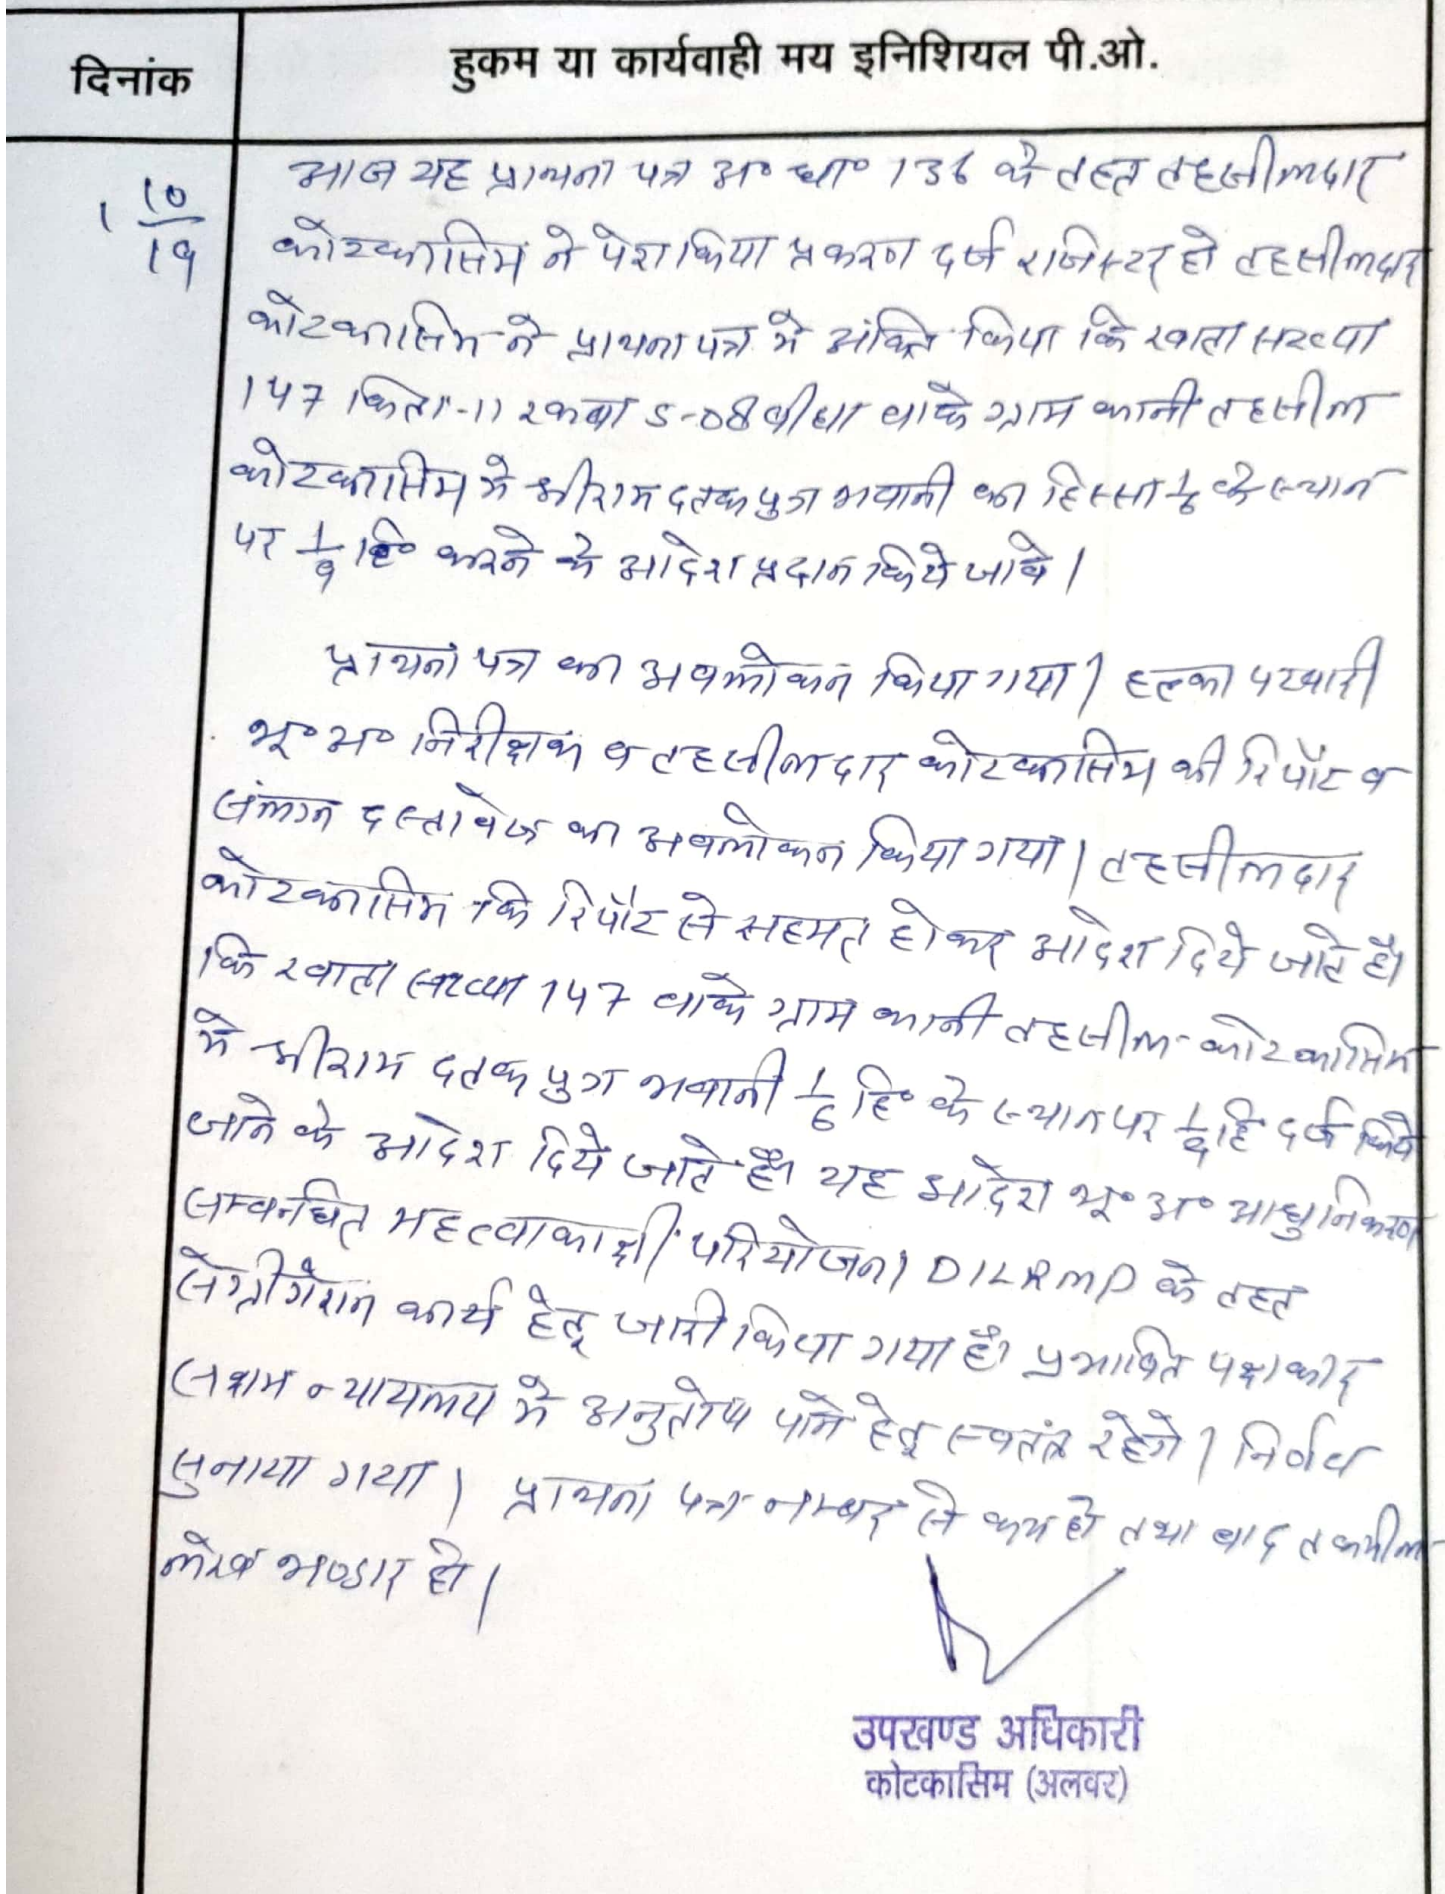 दिनांक
हुकम या कार्यवाही मय इनिशियल पी.ओ.
1 10/19
आज यह प्रार्थना पत्र अ० धा० 136 के तहत तहसीलदार
कोटकासिम ने पेश किया प्रकरण दर्ज रजिस्टर हो तहसीलदार
कोटकासिम ने प्राथना पत्र मे अंकित किया कि खाता सख्या
147 किता-11 रकबा 5-08 बीघा वाके ग्राम कानी तहसील
कोटकासिम मे श्रीराम दतक पुत्र भवानी का हिस्सा 1/6 के स्थान
पर 1/9 हि० करने के आदेश प्रदान किये जावे।
प्राथना पत्र का अवलोकन किया गया। हल्का पटवारी
भू० अ० निरीक्षक व तहसीलदार कोटकासिम की रिपोट व
संलग्न दस्तावेज का अवलोकन किया गया। तहसीलदार
कोटकासिम कि रिपोट से सहमत होकर आदेश दिये जाते है।
कि खाता सख्या 147 वाके ग्राम कानी तहसील-कोटकासिम
मे श्रीराम दतक पुत्र भवानी 1/6 हि० के स्थान पर 1/9 हि दर्ज किये
जाने के आदेश दिये जाते है। यह आदेश भू० अ० आधुनिकरण
सम्बन्धित महत्वाकाक्षी परियोजना DILRMP के तहत
सेग्रीगेशन कार्य हेतू जारी किया गया है। प्रभावित पक्षकार
सक्षम न्यायलय मे अनुतोष पाने हेतू स्वतंत्र रहेगे। निर्णय
सुनाया गया। प्राथना पत्र नम्बर से कम हो तथा बाद तकमील
लेख भण्डार हो।
उपखण्ड अधिकारी
कोटकासिम (अलवर)